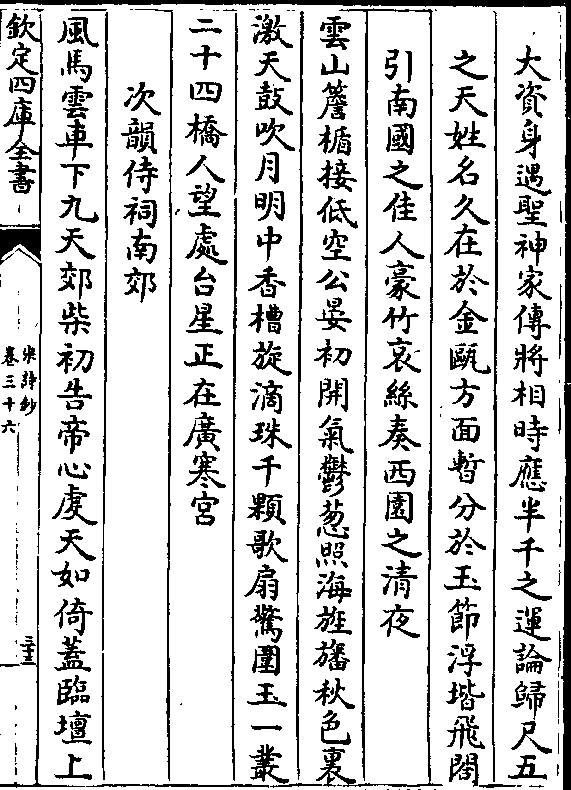 大資身遇聖神家傳將相時應半千之運論歸尺五
之天姓名久在於金甌方面暫分於玉節浮堦飛閣
引南國之佳人豪竹哀絲奏西園之清夜
雲山簷楯接低空公晏初開氣鬱葱照海旌旛秋色裏
激天鼓吹月明中香槽旋滴珠千顆歌扇驚圍玉一叢
二十四橋人望處台星正在廣寒宮
次韻侍祠南郊
風馬雲車下九天郊柴初告帝心虔天如倚蓋臨壇上
欽定四庫全書
宋詩鈔
卷三十六